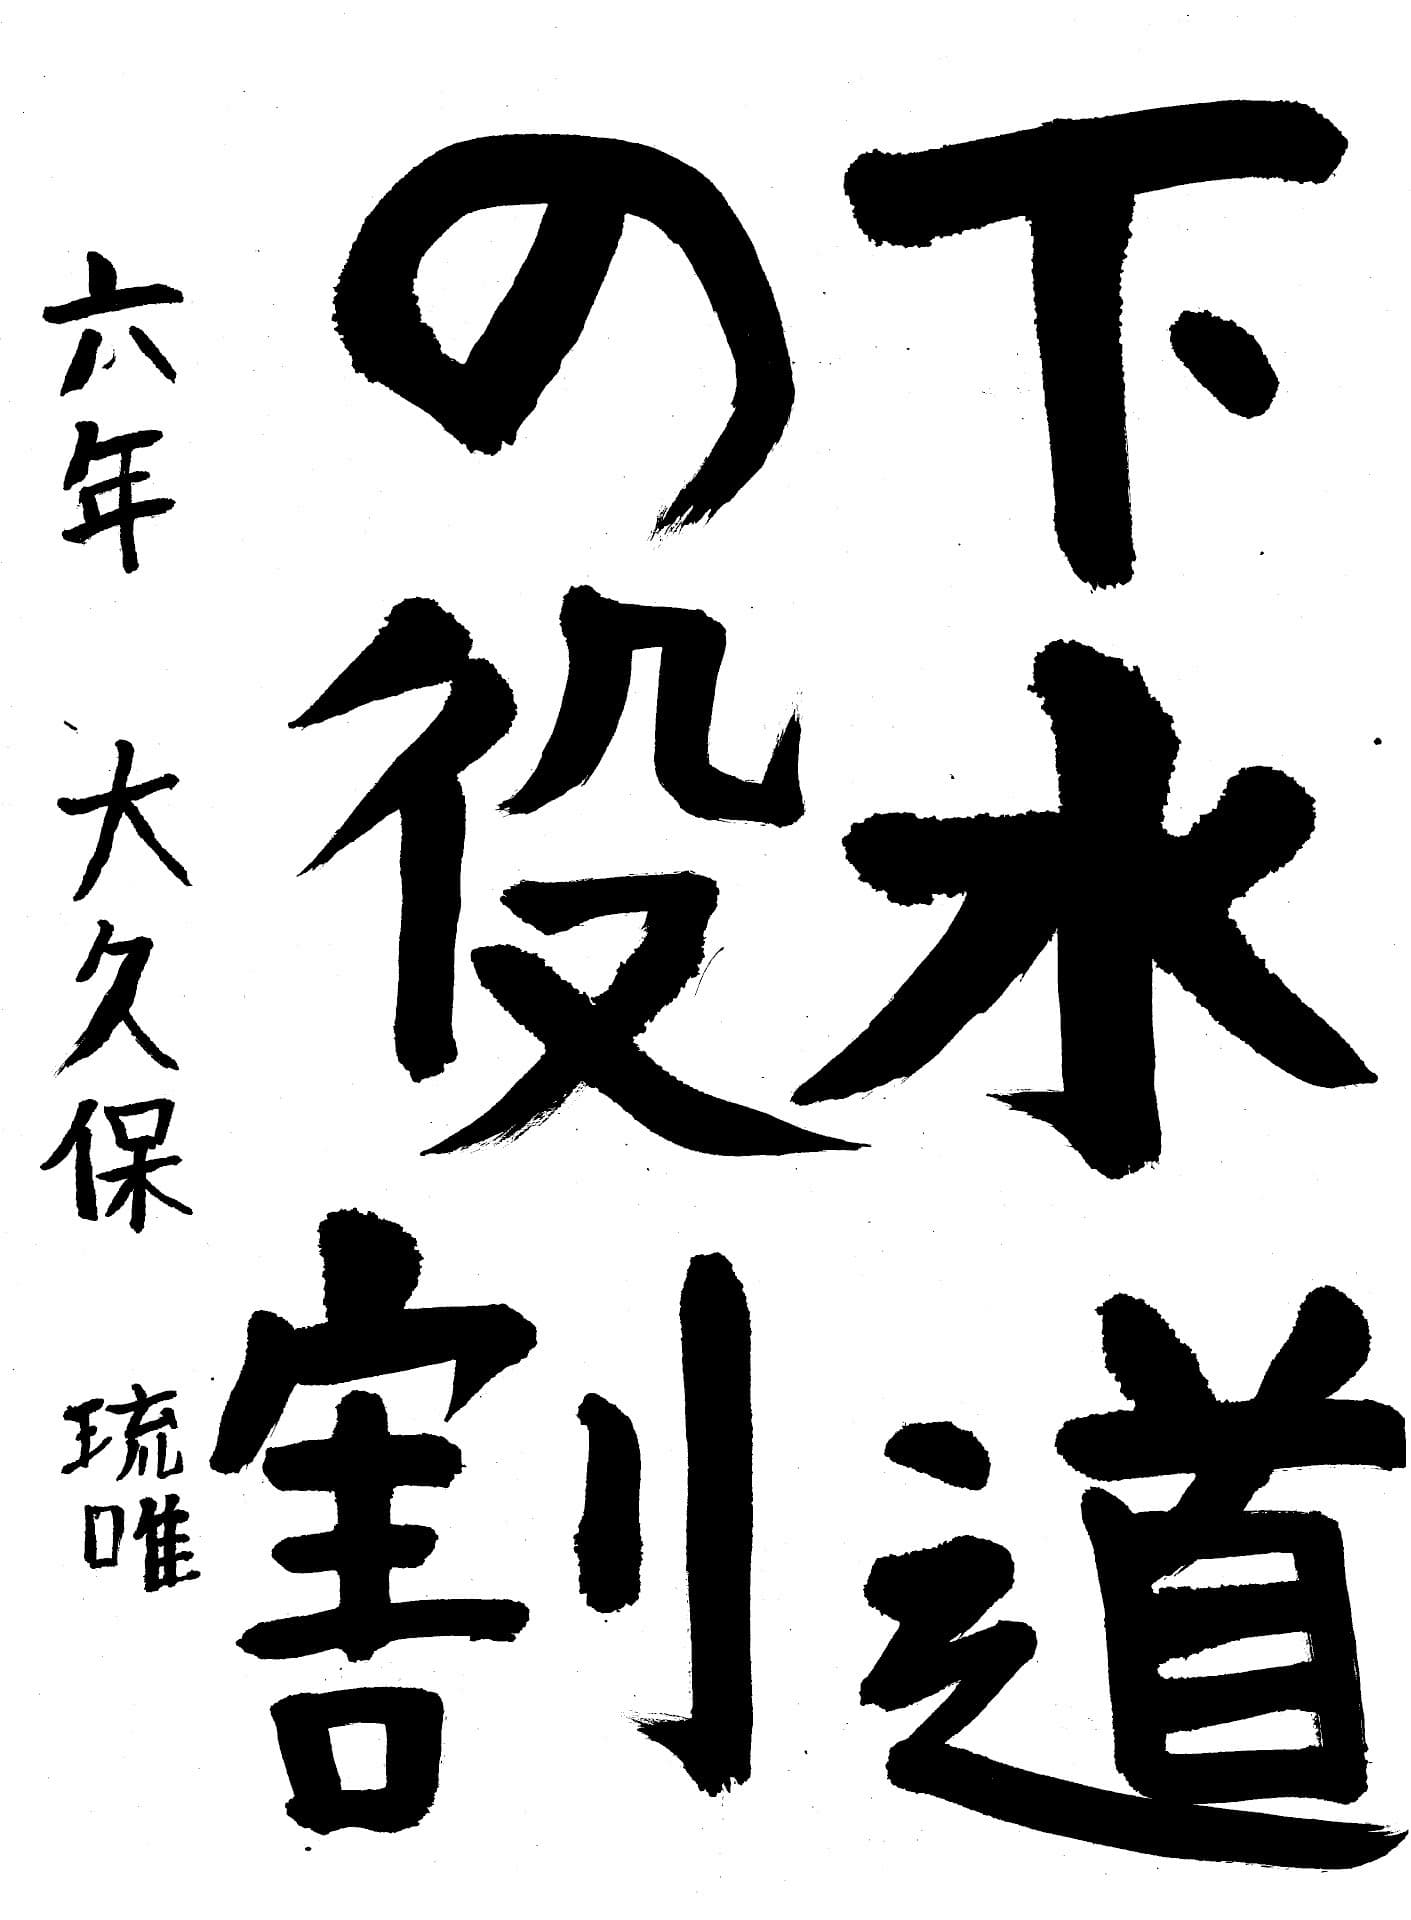 下水道
の役割
六年 大久保 琉唯